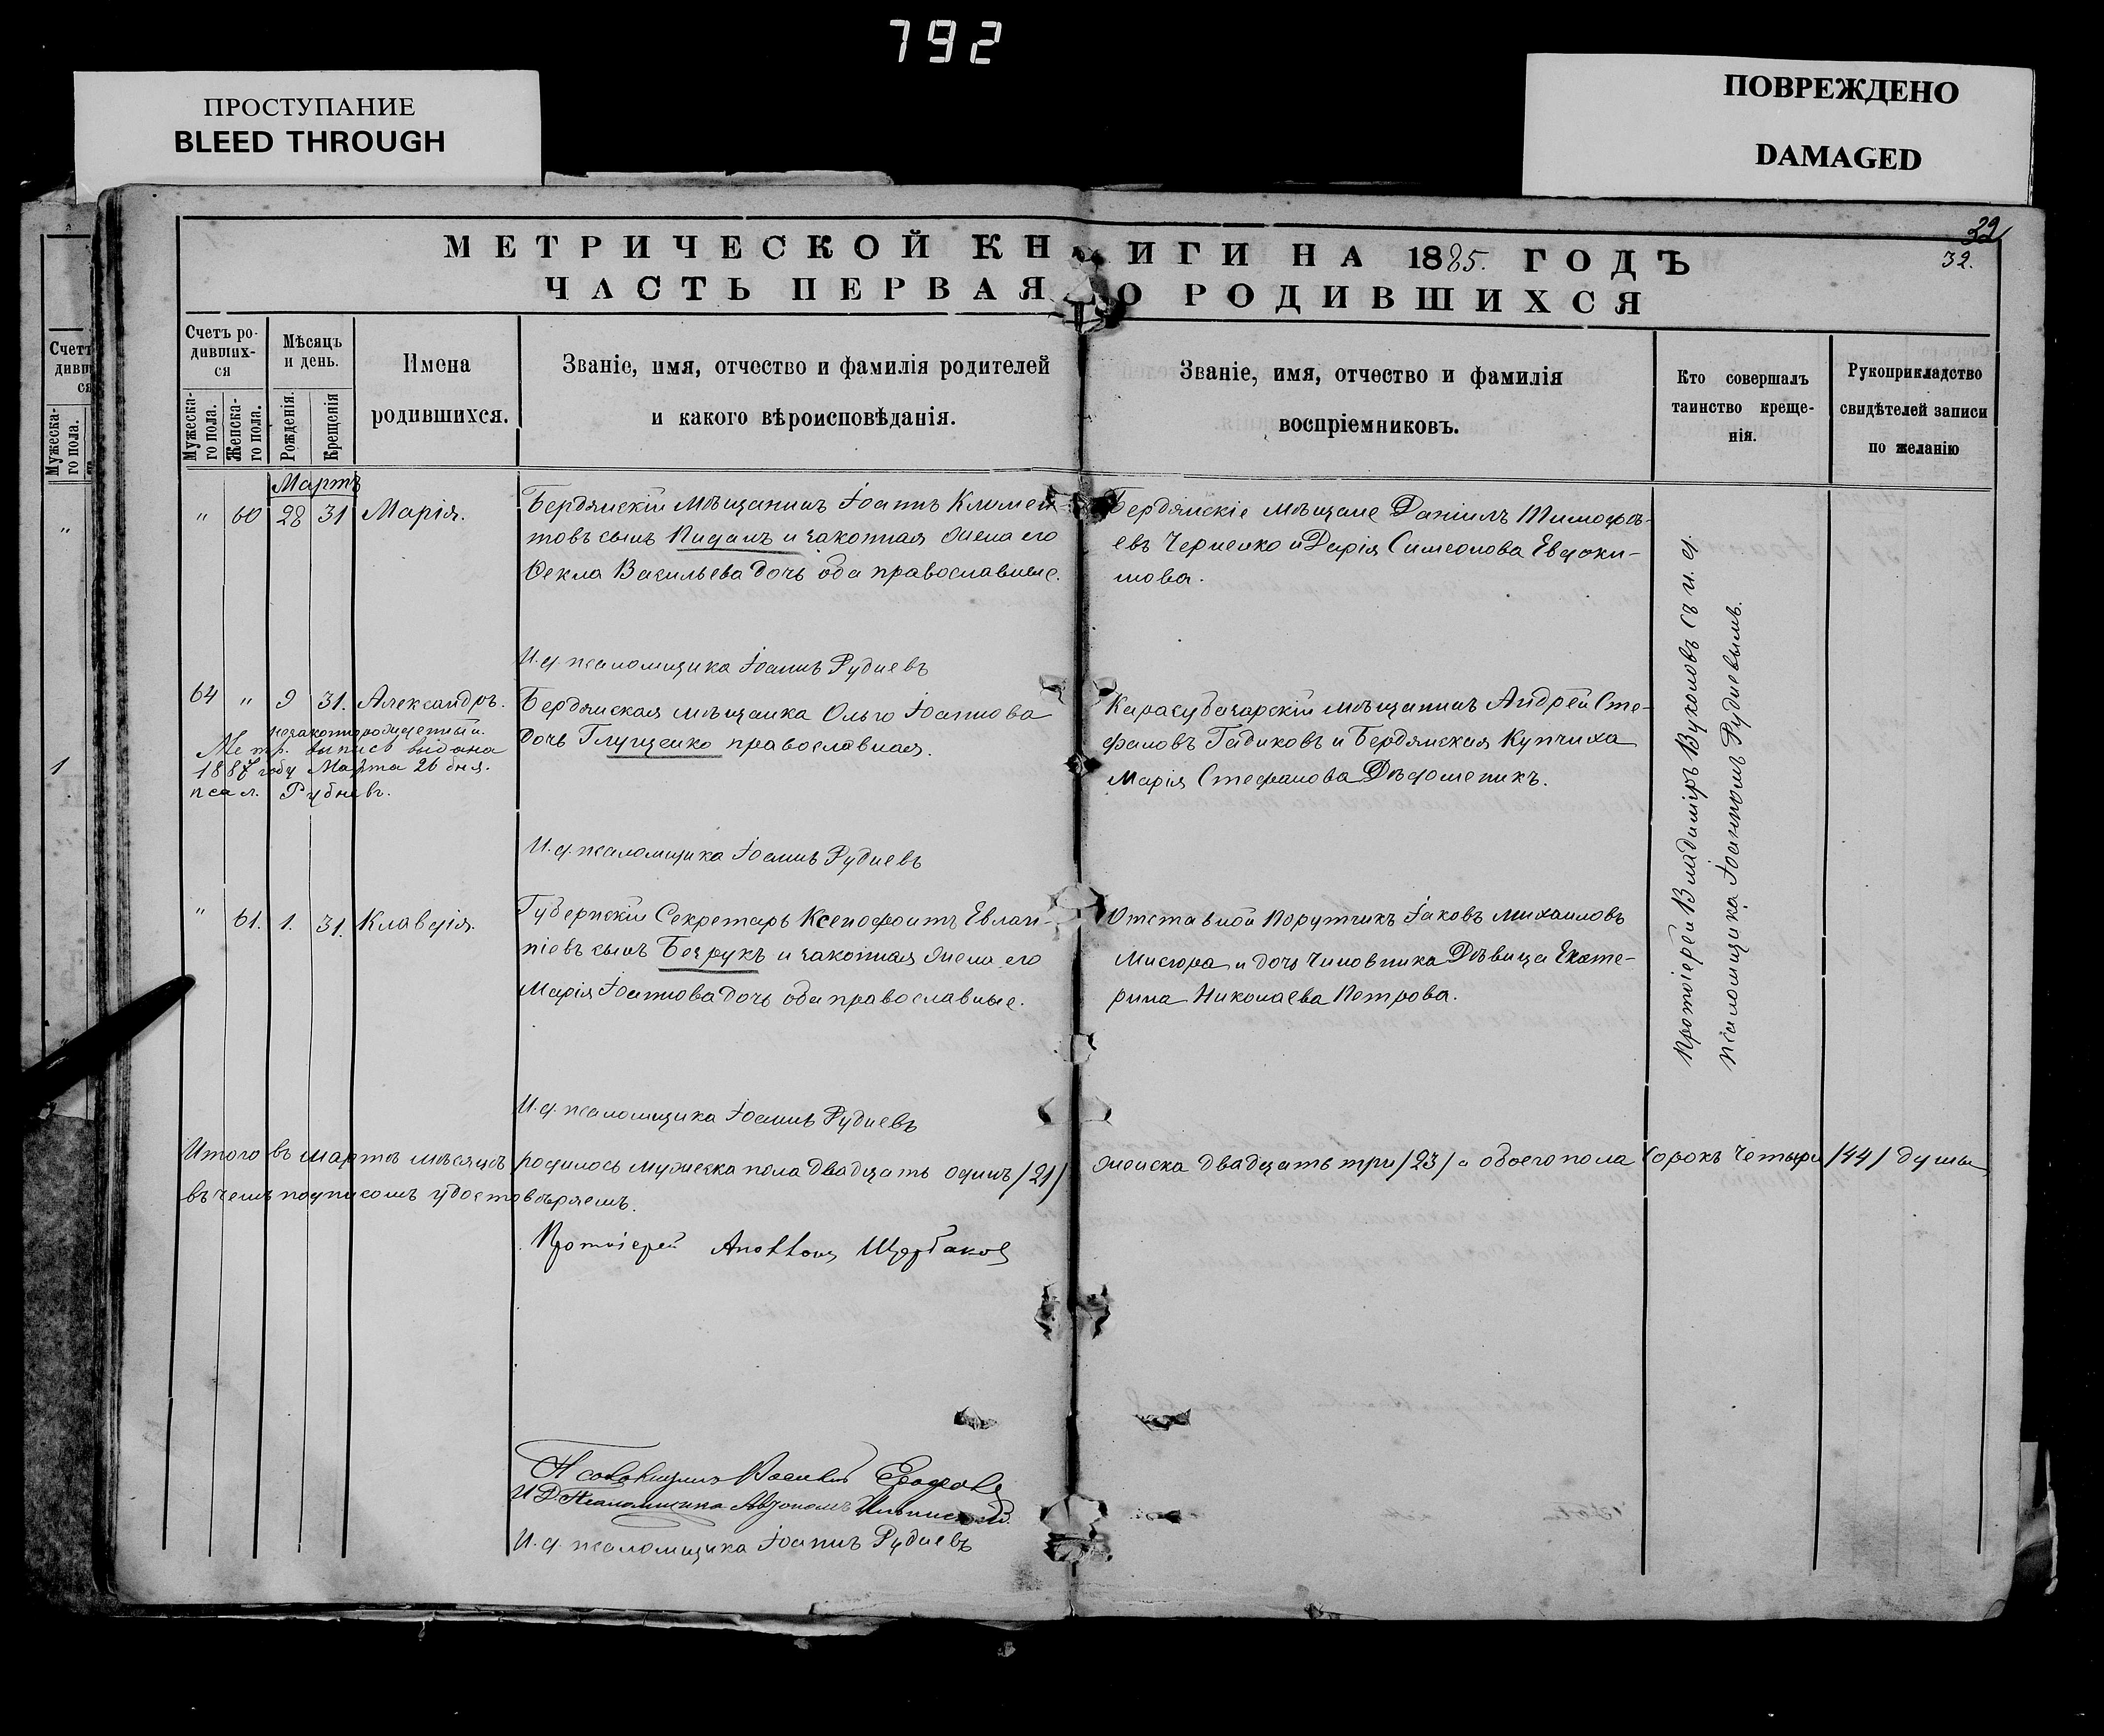 792
ПРОСТУПАНИЕ
BLEED THROUGH
ПОВРЕЖДЕНО
DAMAGED
32
32.
МЕТРИЧЕСКОЙ КНИГИ НА 1885. ГОДЪ
ЧАСТЬ ПЕРВАЯ О РОДИВШИХСЯ
Счетъ ро-
дивших-
ся
Мужеска-
го пола.
Женска-
го пола.
Мѣсяцъ
и день.
Рожденія.
Крещенія
Имена
родившихся.
Званіе, имя, отчество и фамилія родителей
и какого вѣроисповѣданія.
Званіе, имя, отчество и фамилія
воспріемниковъ.
Кто совершалъ
таинство креще-
нія.
Рукоприкладство
свидѣтелей записи
по желанію
Мартъ
" 60 28 31 Марія.
Бердянскій мѣщанинъ Іоаннъ Климен-
товъ сынъ и законная жена его
Ѳекла Васильева дочь оба православные.
Бердянскіе мѣщане Даніилъ Тимофѣ-
евъ Черненко и Дарія Симеонова Евдоки-
мова.
И. д. псаломщика Іоаннъ Рудневъ
64 " 9 31. Александръ.
незаконнорожденный.
Метр. выпись выдана
1887 году Марта 26 дня.
псал. Рудневъ.
Бердянская мѣщанка Ольга Іоаннова
дочь Глущенко православная.
Карасубазарскій мѣщанинъ Андрей Сте-
фановъ Гадиковъ и Бердянская Купчиха
Марія Стефанова
И. д. псаломщика Іоаннъ Рудневъ
" 61. 1. 31. Клавдія.
Губернскій Секретарь Ксенофонтъ Евлам-
піевъ сынъ Безрукъ и законная жена его
Марія Іоаннова дочь оба православные.
Отставной Порутчикъ Іаковъ Михаиловъ
Мисюра и дочь чиновника Дѣвица Екате-
рина Николаева Петрова.
Протоіерей Владиміръ Вуколовъ съ и. д.
псаломщика Іоанномъ Рудневымъ.
И. д. псаломщика Іоаннъ Рудневъ
Итого въ мартѣ мѣсяцѣ родилось мужеска пола двадцать одинъ /21/ женска двадцать три /23/ а обоего пола сорокъ четыре /44/ души
въ чемъ подписомъ удостовѣряемъ.
Протоіерей Аполлонъ Щербаковъ
Псаломщикъ Василій
И Д Псаломщика Автономъ
И. д. псаломщика Іоаннъ Рудневъ
Счетъ
дивш
ся
Мужеска-
го пола.
"
1